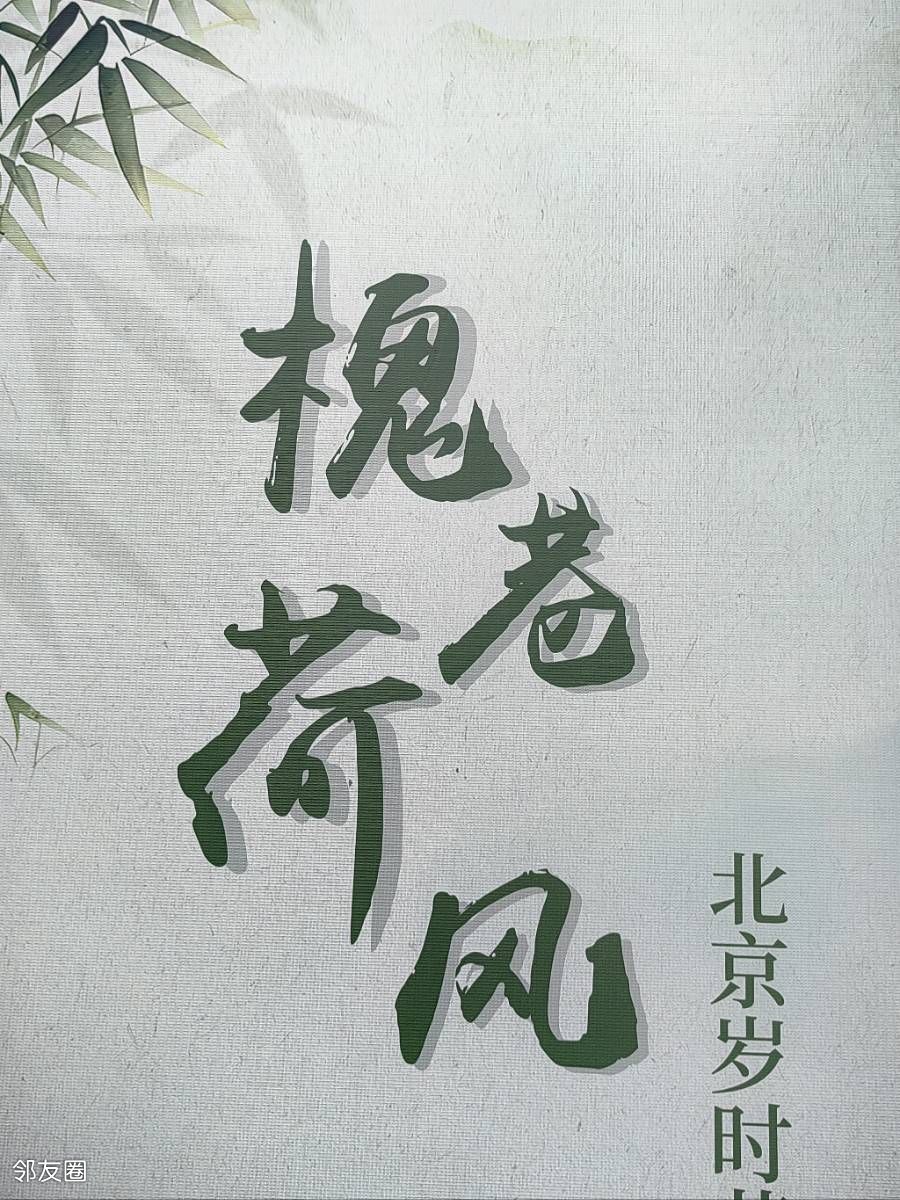 槐巷荷风
北京岁时
邻友圈